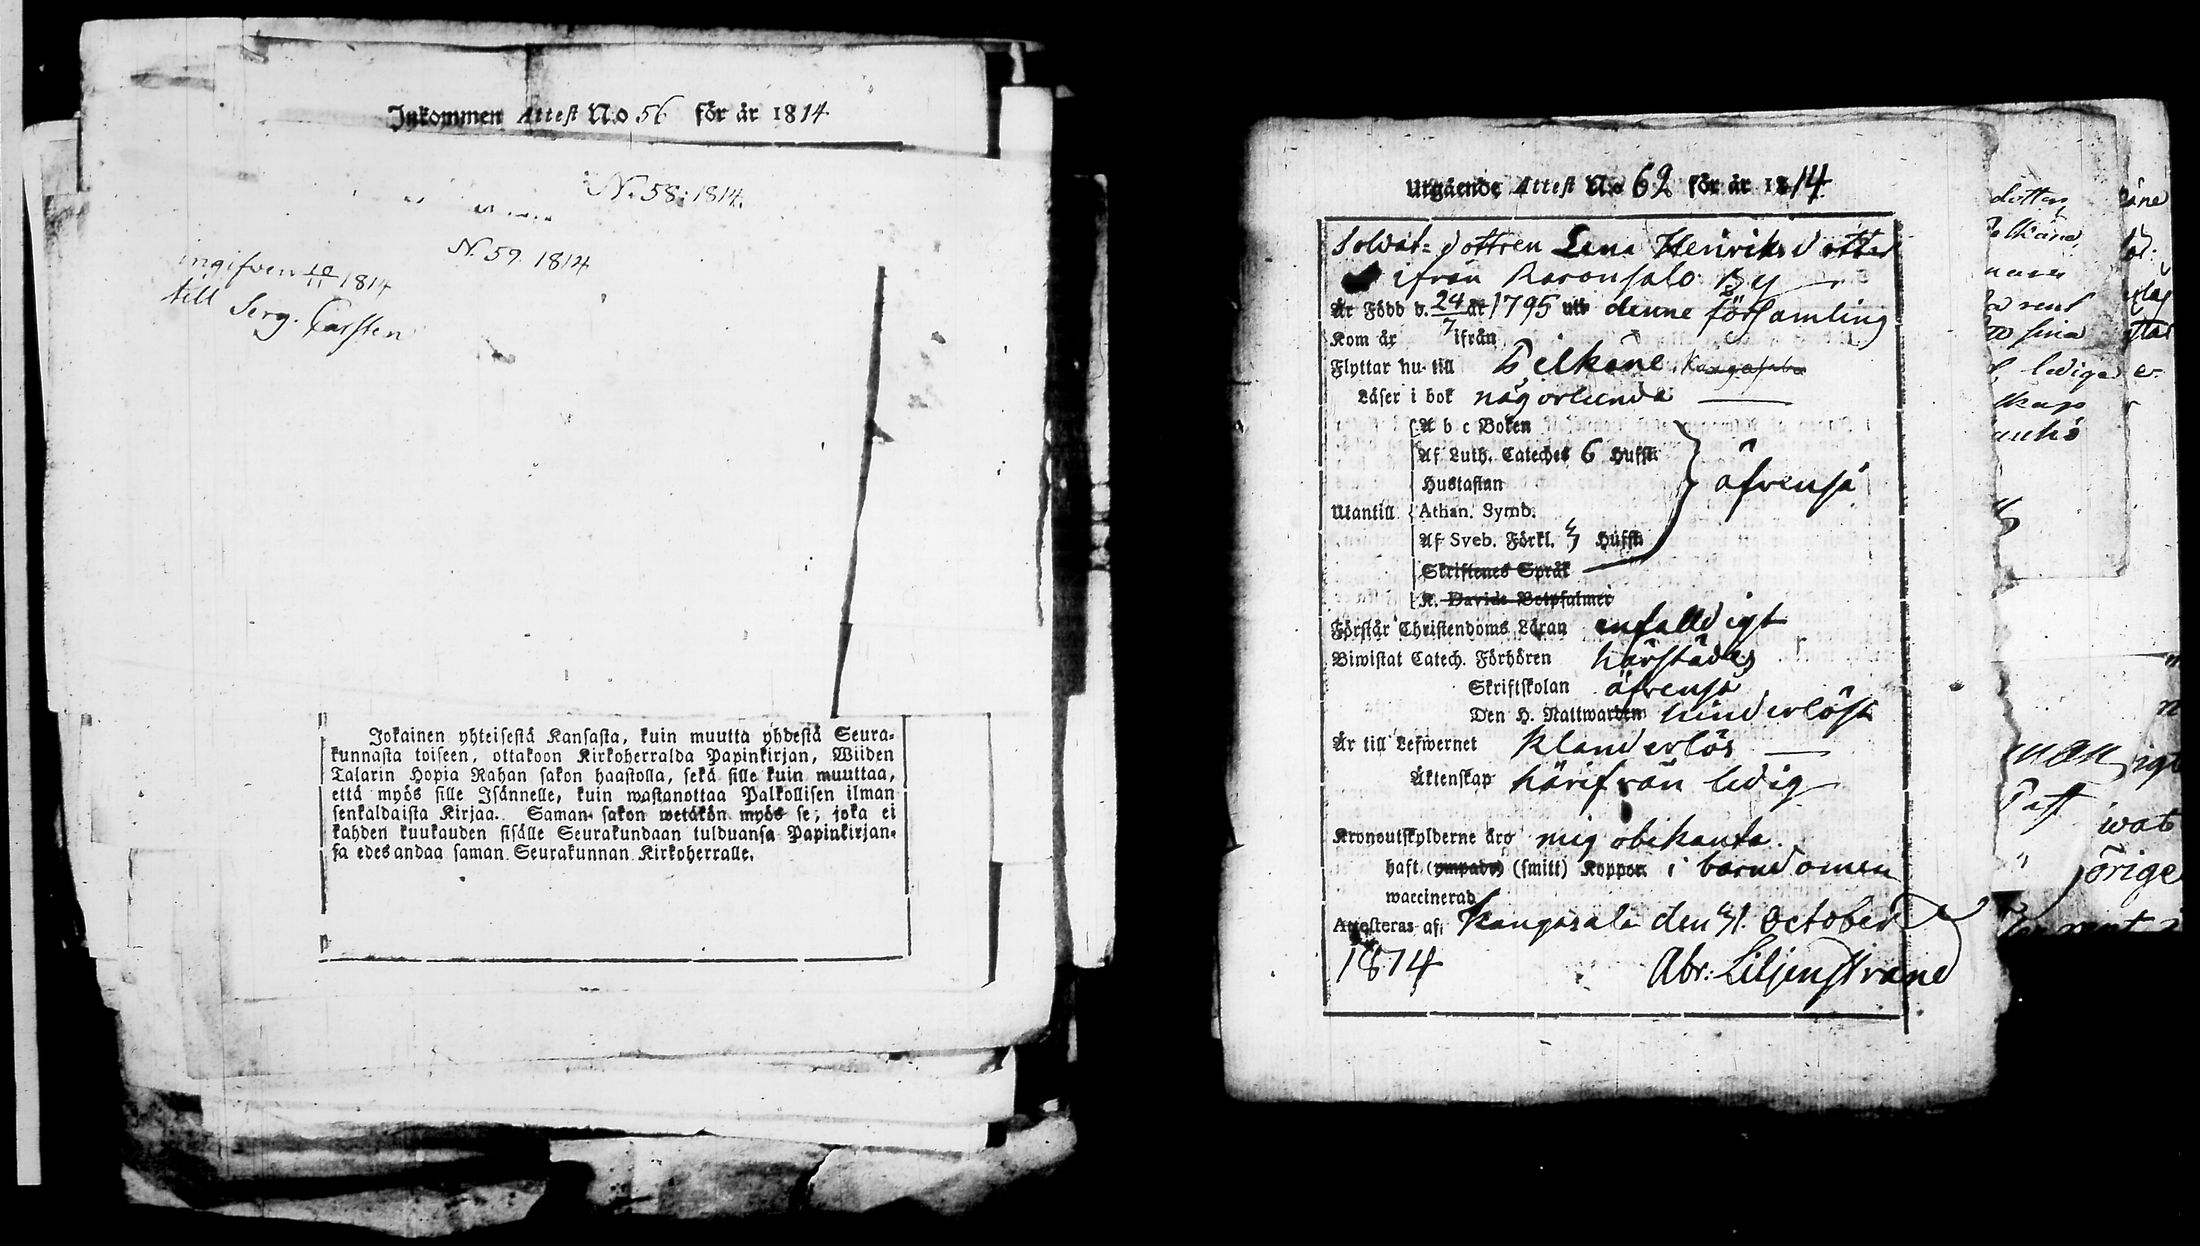 Inkommen Attest N:o 56 för år 1814
N. 58: 1814.
N. 59. 1814
ingifven 10/11 1814
till Serg. Carsten
Jokainen yhteisestä Kansasta, kuin muutta yhdestä Seura-
kunnasta toiseen, ottakoon Kirkoherralda Papinkirjan, Wiiden
Talarin Hopia Rahan sakon haastolla, sekä sille kuin muuttaa,
että myös sille Isännelle, kuin wastanottaa Palkollisen ilman
senkaldaista Kirjaa. Saman sakon wetäkön myös se, joka ei
kahden kuukauden sisälle Seurakundaan tulduansa Papinkirjan-
sa edesandaa saman Seurakunnan Kirkoherralle.
Utgående Attest N:o 62 för år 1814.
Soldat-dottren Lena Henriksdotter
ifrån Raronsalo By
Är Född d. 24/7 år 1795 uti denne församling
Kom år ifrån
Flyttar nu till Pelkäne. Kangasala
Läser i bok någorlunda
A b c Boken
Af Luth. Cateches 6 Hufst.
Hustaflan
äfvenså
Utantill Athan. Symb.
Af Sveb. Förkl. 3 Hufst.
Skriftenes Språk
K. Davids Botpsalmer
Förstår Christendoms Läran enfalldigt
Biwistat Catech. Förhören härstädes
Skriftskolan äfvenså
Den H. Nattwarden hinderlöst
Är till Lefwernet klanderlös
Äktenskap härifrån ledig
Kronoutskylderne äro mig obekanta.
haft (ympade) (smitt) Koppor i barndomen
waccinerad
Attesteras af: Kangasala den 31. October
1814 Abr: Liljenstrand